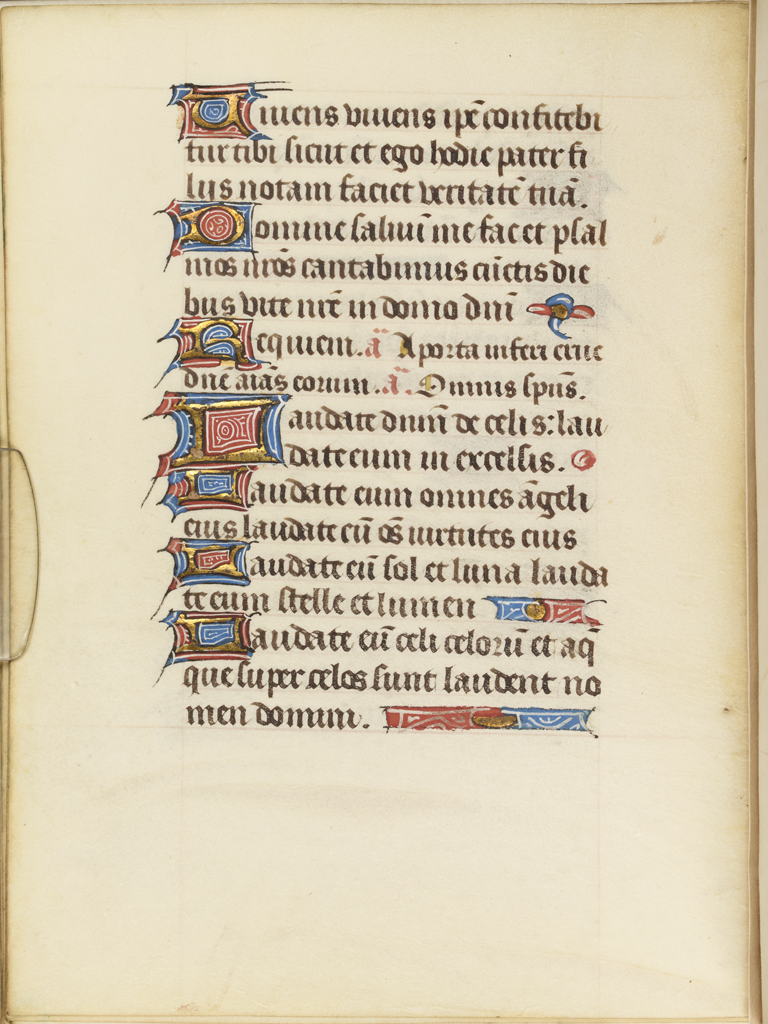 Uiuens viuens ip̄e confitebi
tur tibi sicut et ego hodie pater fi
liis notam faciet veritatē tuā.
Domine saluū me fac et psal
mos nr̄os cantabimus cūctis die
bus vite nr̄e in domo dn̄i
Requiem. ā Aporta inferi erue
dn̄e aīas eorum. ā. Omnis sp̄us.
Laudate dnm̄ de celis: lau
date eum in excelsis.
Laudate eum omnes āgeli
eius laudate eū os̄ uirtutes eius
Laudate eū sol et luna lauda
te eum stelle et lumen
Laudate eū celi celorū et aq̄
que super celos sunt laudent no
men domini.